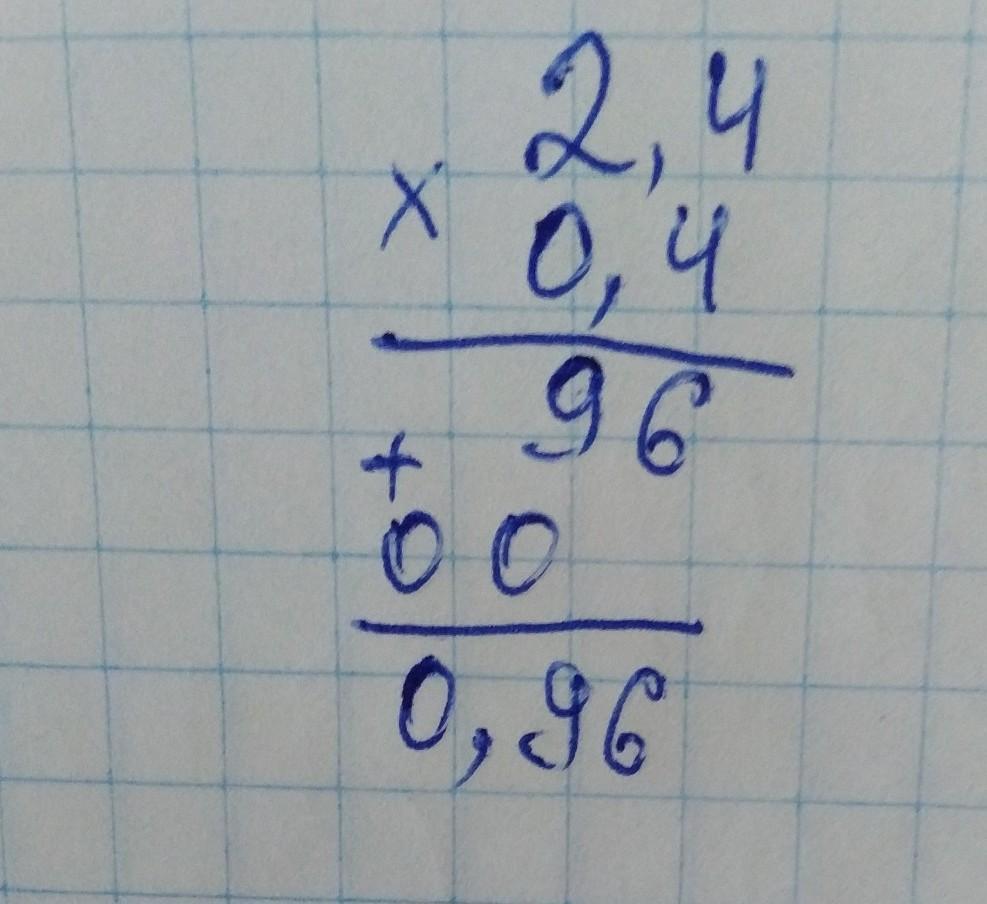 2,4
×
0,4
96
+
00
0,96